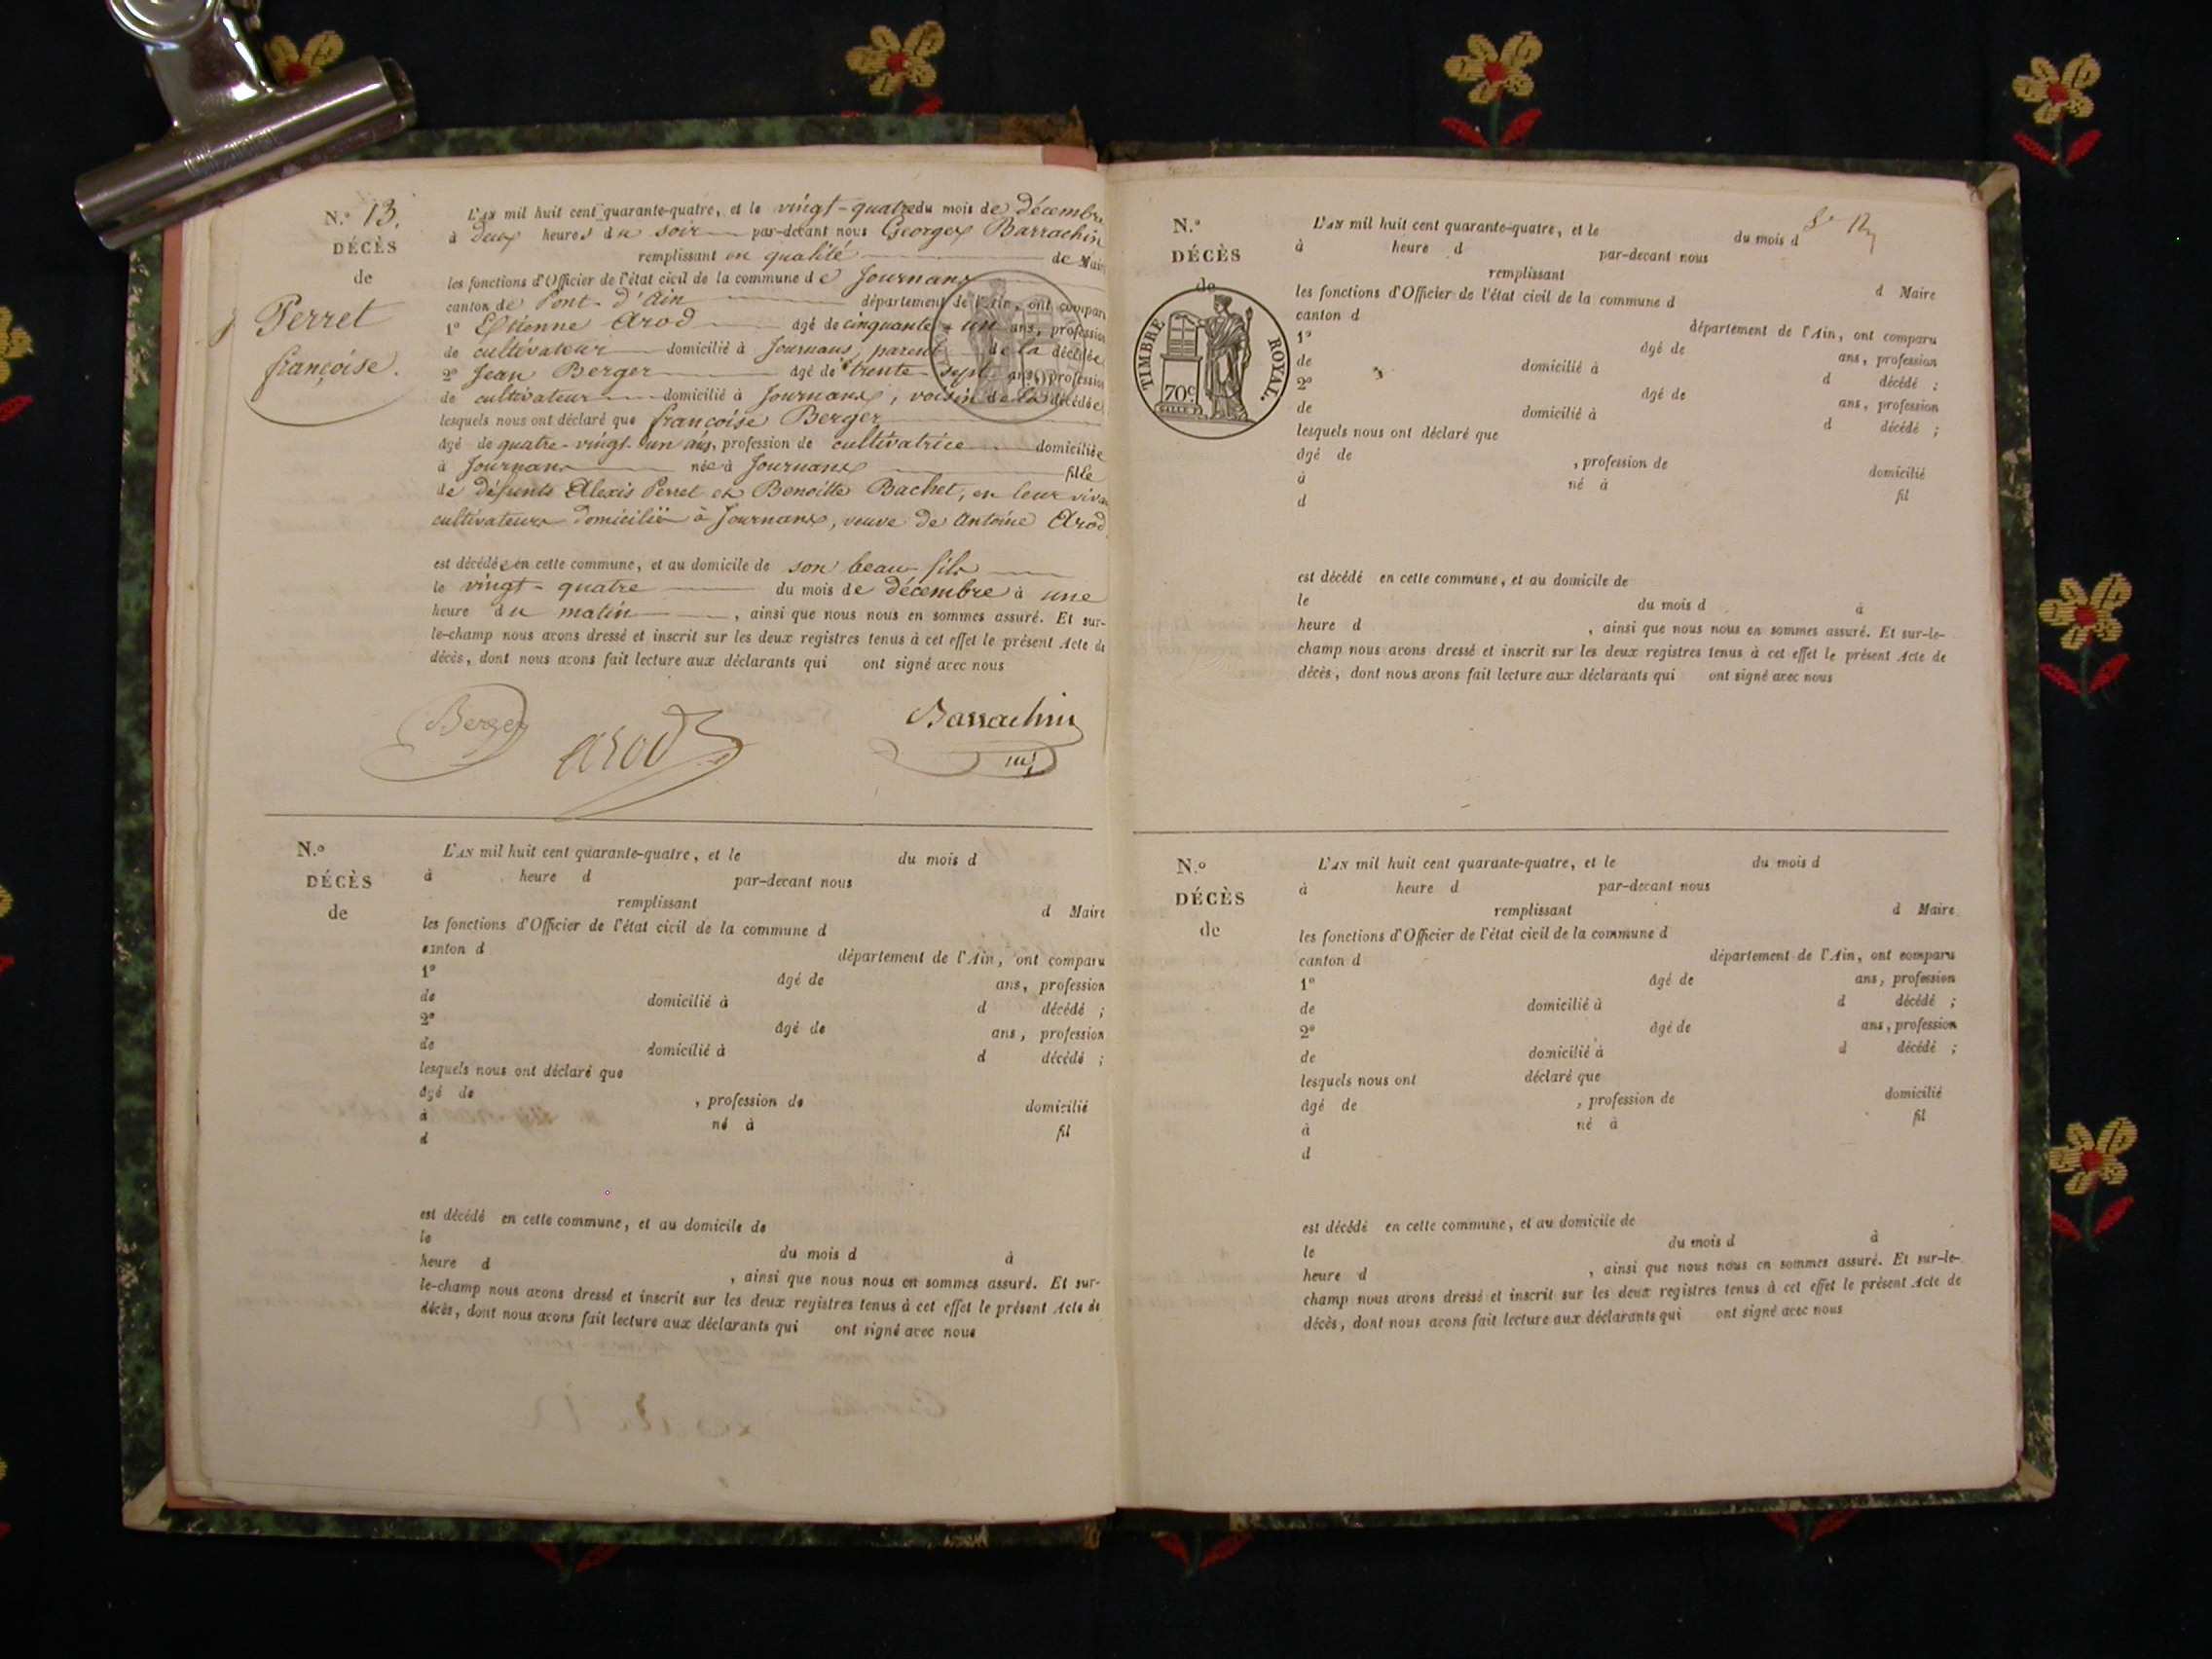 N.º 13.
DÉCÈS
de
Perret
françoise.
L'AN mil huit cent quarante-quatre, et le vingt-quatre du mois de décembre
à deux heures du soir par-devant nous Georges Barrachin
remplissant en qualité de Mair
les fonctions d'Officier de l'état civil de la commune de Journans
canton de Pont-d'Ain département de l'Ain, ont comparu
1º Etienne Arod âgé de cinquante-un ans, profession
de cultivateur domicilié à Journans, parent de la décédée
2º Jean Berger âgé de trente-sept ans, profession
de cultivateur domicilié à Journans, voisin de la décédée
lesquels nous ont déclaré que françoise Berger
âgé de quatre-vingt-un ans, profession de cultivatrice domiciliée
à Journans née à Journans fille
de défunts Alexis Perret et Benoitte Bachet, en leur viva
cultivateurs domiciliés à Journans, veuve de Antoine Arod
est décédée en cette commune, et au domicile de son beau-fils
le vingt-quatre du mois de décembre à une
heure du matin, ainsi que nous nous en sommes assuré. Et sur-
le-champ nous avons dressé et inscrit sur les deux registres tenus à cet effet le présent Acte de
décès, dont nous avons fait lecture aux déclarants qui ont signé avec nous
Berger arod Barrachin
N.º
DÉCÈS
de
L'AN mil huit cent quarante-quatre, et le du mois d
à heure d par-devant nous
remplissant d Maire
les fonctions d'Officier de l'état civil de la commune d
canton d département de l'Ain, ont comparu
1º âgé de ans, profession
de domicilié à d décédé ;
2º âgé de ans, profession
de domicilié à d décédé ;
lesquels nous ont déclaré que
âgé de , profession de domicilié
à né à fil
d
est décédé en cette commune, et au domicile de
le du mois d à
heure d , ainsi que nous nous en sommes assuré. Et sur-
le-champ nous avons dressé et inscrit sur les deux registres tenus à cet effet le présent Acte de
décès, dont nous avons fait lecture aux déclarants qui ont signé avec nous
N.º
DÉCÈS
de
TIMBRE ROYAL.
70c
L'AN mil huit cent quarante-quatre, et le du mois d
à heure d par-devant nous
remplissant d Maire
les fonctions d'Officier de l'état civil de la commune d
canton d département de l'Ain, ont comparu
1º âgé de ans, profession
de domicilié à d décédé ;
2º âgé de ans, profession
de domicilié à d décédé ;
lesquels nous ont déclaré que
âgé de , profession de domicilié
à né à fil
d
est décédé en cette commune, et au domicile de
le du mois d à
heure d , ainsi que nous nous en sommes assuré. Et sur-le-
champ nous avons dressé et inscrit sur les deux registres tenus à cet effet le présent Acte de
décès, dont nous avons fait lecture aux déclarants qui ont signé avec nous
N.º
DÉCÈS
de
L'AN mil huit cent quarante-quatre, et le du mois d
à heure d par-devant nous
remplissant d Maire
les fonctions d'Officier de l'état civil de la commune d
canton d département de l'Ain, ont comparu
1º âgé de ans, profession
de domicilié à d décédé ;
2º âgé de ans, profession
de domicilié à d décédé ;
lesquels nous ont déclaré que
âgé de , profession de domicilié
à né à fil
d
est décédé en cette commune, et au domicile de
le du mois d à
heure d , ainsi que nous nous en sommes assuré. Et sur-le-
champ nous avons dressé et inscrit sur les deux registres tenus à cet effet le présent Acte de
décès, dont nous avons fait lecture aux déclarants qui ont signé avec nous